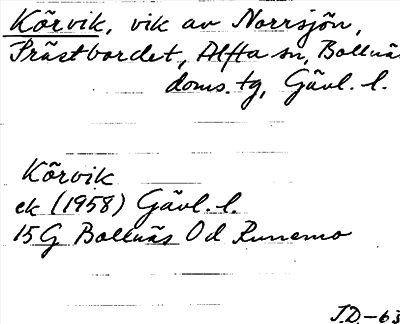 Kõrvik, vik av Norrsjön,
Prästbordet, Alfta sn, Bollnäs
doms. tg, Gävl. l.
Kõrvik
ek (1958) Gävl. l.
15G Bollnäs Od Runemo
J.D.-63